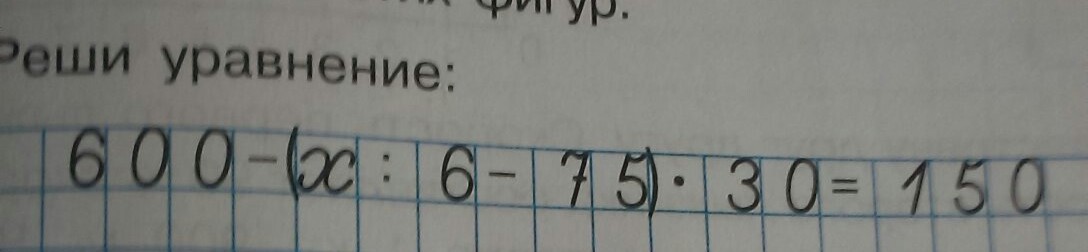 фигур.
Реши уравнение:
600-(x:6-75)·30=150